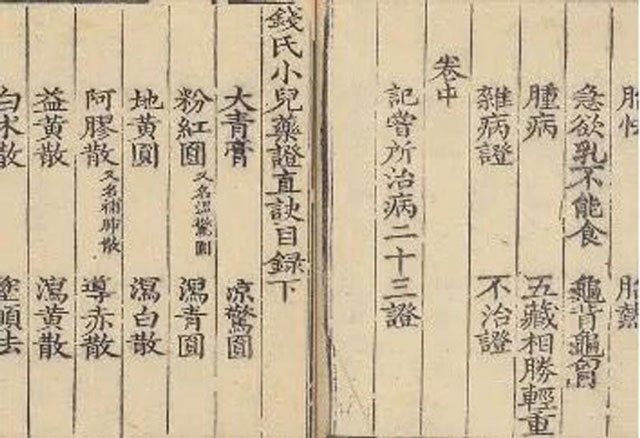 急欲乳不能食 龜背龜胷
腫病 五藏相勝輕重
雜病證 不治證
卷中
記嘗所治病二十三證
錢氏小兒藥證直訣目録下
大青膏 凉驚圓
粉紅圓又名温驚圓 瀉青圓
地黄圓 瀉白散
阿膠散又名補肺散 導赤散
益黄散 瀉黄散
白术散